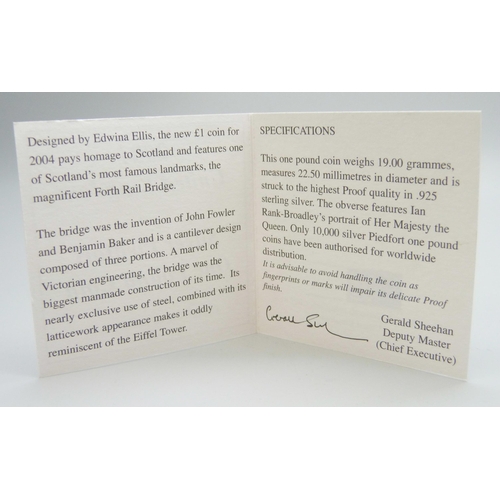 Designed by Edwina Ellis, the new £1 coin for
2004 pays homage to Scotland and features one
of Scotland's most famous landmarks, the
magnificent Forth Rail Bridge.
The bridge was the invention of John Fowler
and Benjamin Baker and is a cantilever design
composed of three portions. A marvel of
Victorian engineering, the bridge was the
biggest manmade construction of its time. Its
nearly exclusive use of steel, combined with its
latticework appearance makes it oddly
reminiscent of the Eiffel Tower.
SPECIFICATIONS
This one pound coin weighs 19.00 grammes,
measures 22.50 millimetres in diameter and is
struck to the highest Proof quality in .925
sterling silver. The obverse features Ian
Rank-Broadley's portrait of Her Majesty the
Queen. Only 10,000 silver Piedfort one pound
coins have been authorised for worldwide
distribution.
It is advisable to avoid handling the coin as
fingerprints or marks will impair its delicate Proof
finish.
Gerald Sheehan
Deputy Master
(Chief Executive)